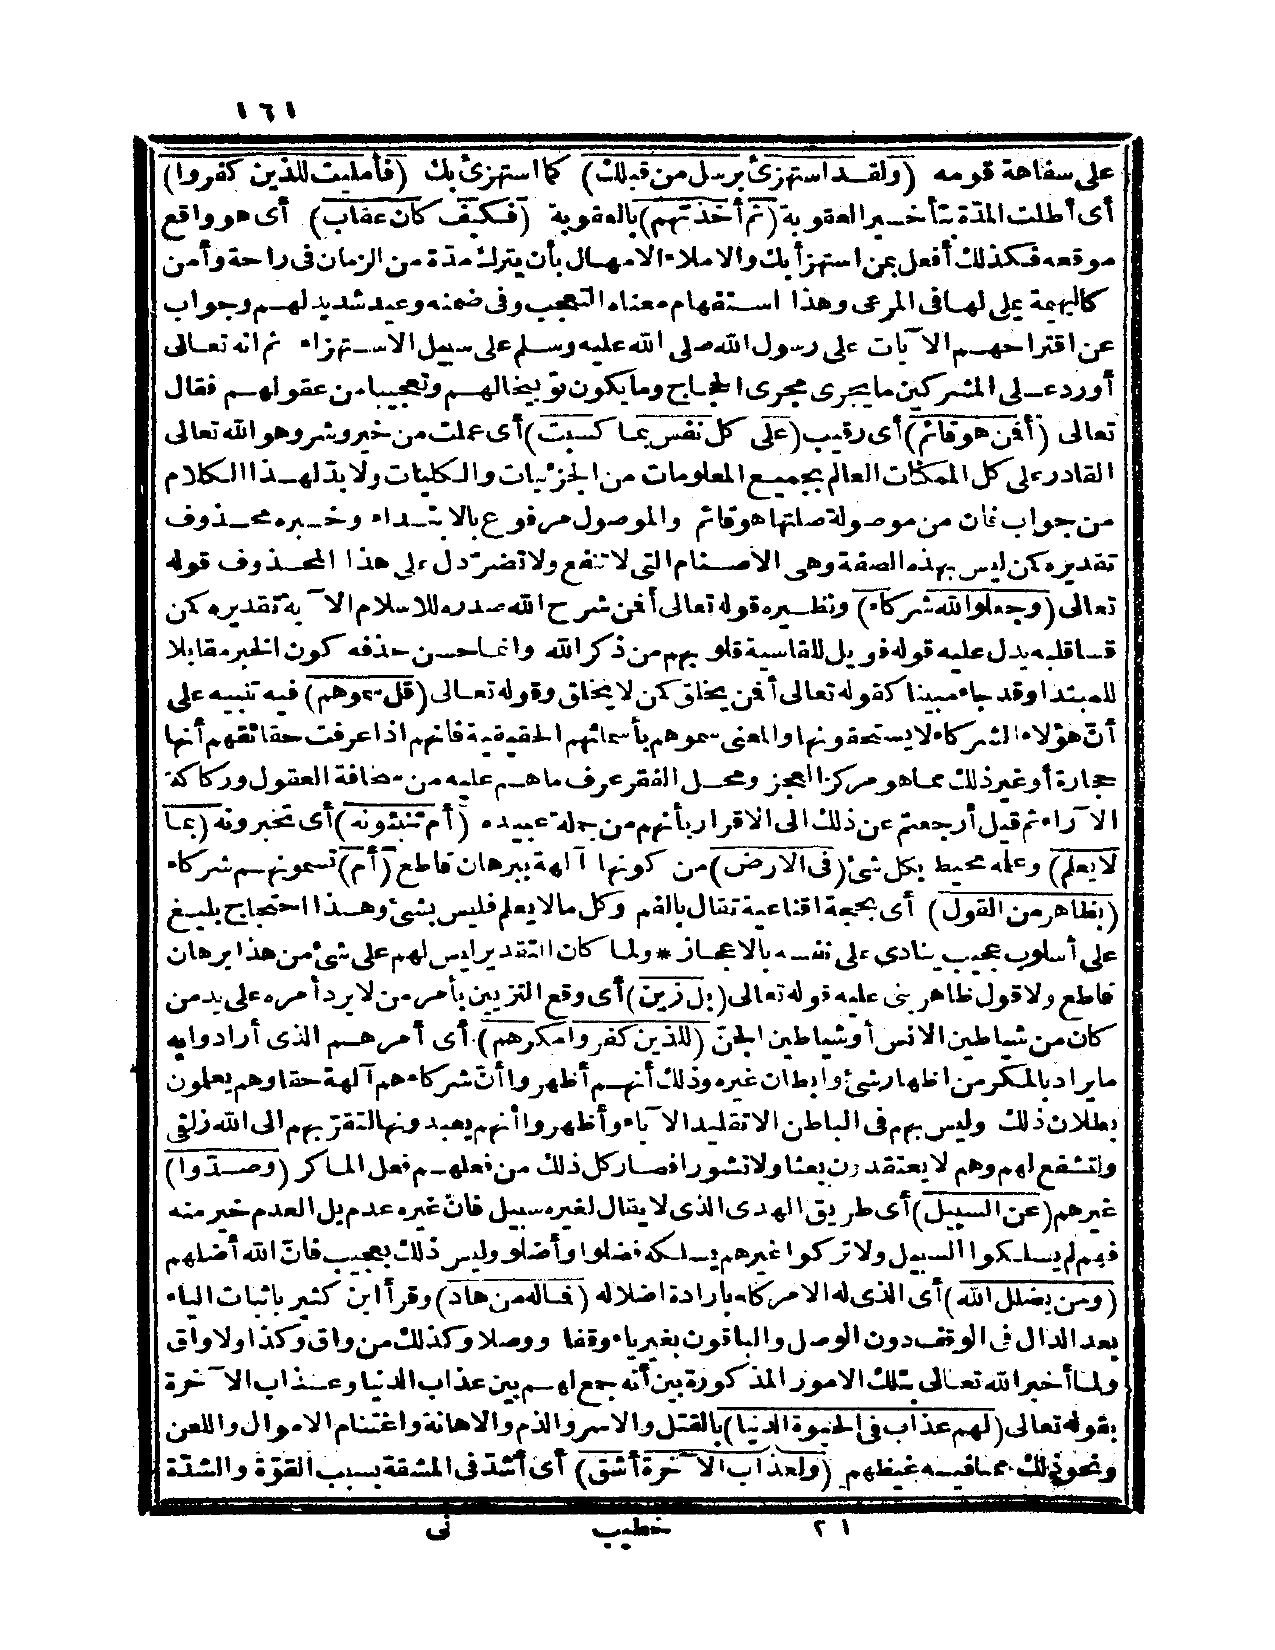 ١٦١
على سفاهة قومه (ولقد استهزئ برسل من قبلك) كما استهزئ بك (فأمليت للذين كفروا)
أى أطلت المدّة بتأخير العقوبة (ثم أخذتهم) بالعقوبة (فكيف كان عقاب) أى هو واقع
موقعه فكذلك أفعل بمن استهزأ بك والاملاء الامهال بأن يترك مدّة من الزمان فى راحة وأمن
كالبهيمة يملى لها فى المرعى وهذا استفهام معناه التعجب وفى ضمنه وعيد شديد لهم وجواب
عن اقتراحهم الآيات على رسول الله صلى الله عليه وسلم على سبيل الاستهزاء ثم انه تعالى
أورد على المشركين ما يجرى مجرى الحجاج وما يكون توبيخا لهم وتعجيبا من عقولهم فقال
تعالى (أفمن هو قائم) أى رقيب (على كل نفس بما كسبت) أى عملت من خير وشر وهو الله تعالى
القادر على كل الممكنات العالم بجميع المعلومات من الجزئيات والكليات ولا بدّ لهذا الكلام
من جواب فان من موصولة صلتها هو قائم والموصول مرفوع بالابتداء وخبره محذوف
تقديره كمن ليس بهذه الصفة وهى الاصنام التى لا تنفع ولا تضرّ دل على هذا المحذوف قوله
تعالى (وجعلوا لله شركاء) ونظيره قوله تعالى أفمن شرح الله صدره للاسلام الآية تقديره كمن
قسا قلبه يدل عليه قوله فويل للقاسية قلوبهم من ذكر الله وانما حسن حذفه كون الخبر مقابلا
للمبتدا وقد جاء مبينا كقوله تعالى أفمن يخلق كمن لا يخلق وقوله تعالى (قل سموهم) فيه تنبيه على
أنّ هؤلاء الشركاء لا يستحقونها والمعنى سموهم بأسمائهم الحقيقية فانهم اذا عرفت حقائقهم أنها
حجارة أو غير ذلك مما هو مركز العجز ومحل الفقر عرف ما هم عليه من سخافة العقول وركاكة
الآراء ثم قيل أرجعتم عن ذلك الى الاقرار بأنهم من جملة عبيده (أم تنبئونه) أى تخبرونه (بما
لا يعلم) وعلمه محيط بكل شئ (فى الارض) من كونها آلهة ببرهان قاطع (أم) تسمونهم شركاء
(بظاهر من القول) أى بحجة اقناعية تقال بالفم وكل ما لا يعلم فليس بشئ وهذا احتجاج بليغ
على أسلوب عجيب ينادى على نفسه بالاعجاز * ولما كان التقدير ليس لهم على شئ من هذا برهان
قاطع ولا قول ظاهر بنى عليه قوله تعالى (بل زين) أى وقع التزيين بأمر من لا يرد أمره على يد من
كان من شياطين الانس أو شياطين الجنّ (للذين كفروا مكرهم) أى أمرهم الذى أرادوا به
ما يراد بالمكر من اظهار شئ وابطان غيره وذلك أنهم أظهروا أنّ شركاءهم آلهة حقا وهم يعلمون
بطلان ذلك وليس بهم فى الباطن الا تقليد الآباء وأظهروا أنهم يعبدونها لتقرّبهم الى الله زلفى
ولتشفع لهم وهم لا يعتقدون بعثا ولا نشورا فصار كل ذلك من فعلهم فعل الماكر (وصدّوا)
غيرهم (عن السبيل) أى طريق الهدى الذى لا يقال لغيره سبيل فانّ غيره عدم بل العدم خير منه
فهم لم يسلكوا السبيل ولا تركوا غيرهم يسلكه فضلوا وأضلو وليس ذلك بعجيب فانّ الله أضلهم
(ومن يضلل الله) أى الذى له الامر كله بارادة اضلاله (فما له من هاد) وقرأ ابن كثير باثبات الياء
بعد الدال فى الوقف دون الوصل والباقون بغير ياء وقفا ووصلا وكذلك من واق وكذا ولا واق
ولما أخبر الله تعالى بتلك الامور المذكورة بين أنه جمع لهم بين عذاب الدنيا وعذاب الآخرة
بقوله تعالى (لهم عذاب فى الحيوة الدنيا) بالقتل والاسر والذم والاهانة واغتنام الاموال واللعن
ونحو ذلك مما فيه غيظهم (ولعذاب الآخرة أشق) أى أشدّ فى المشقة بسبب القوّة والشدّة
٢١ خطيب نى